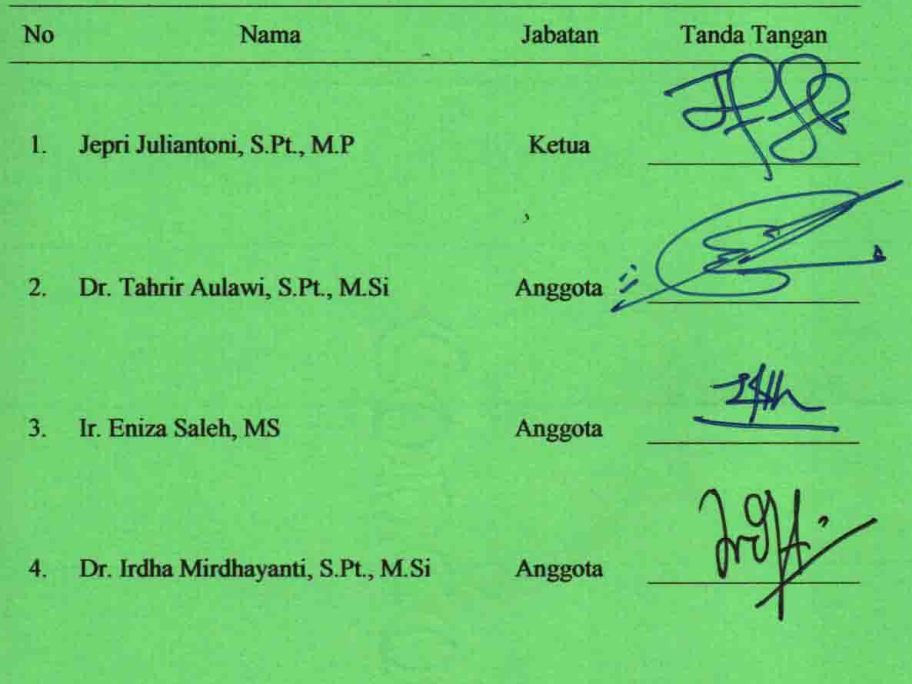 No Nama Jabatan Tanda Tangan
1. Jepri Juliantoni, S.Pt., M.P Ketua
2. Dr. Tahrir Aulawi, S.Pt., M.Si Anggota
3. Ir. Eniza Saleh, MS Anggota
4. Dr. Irdha Mirdhayanti, S.Pt., M.Si Anggota